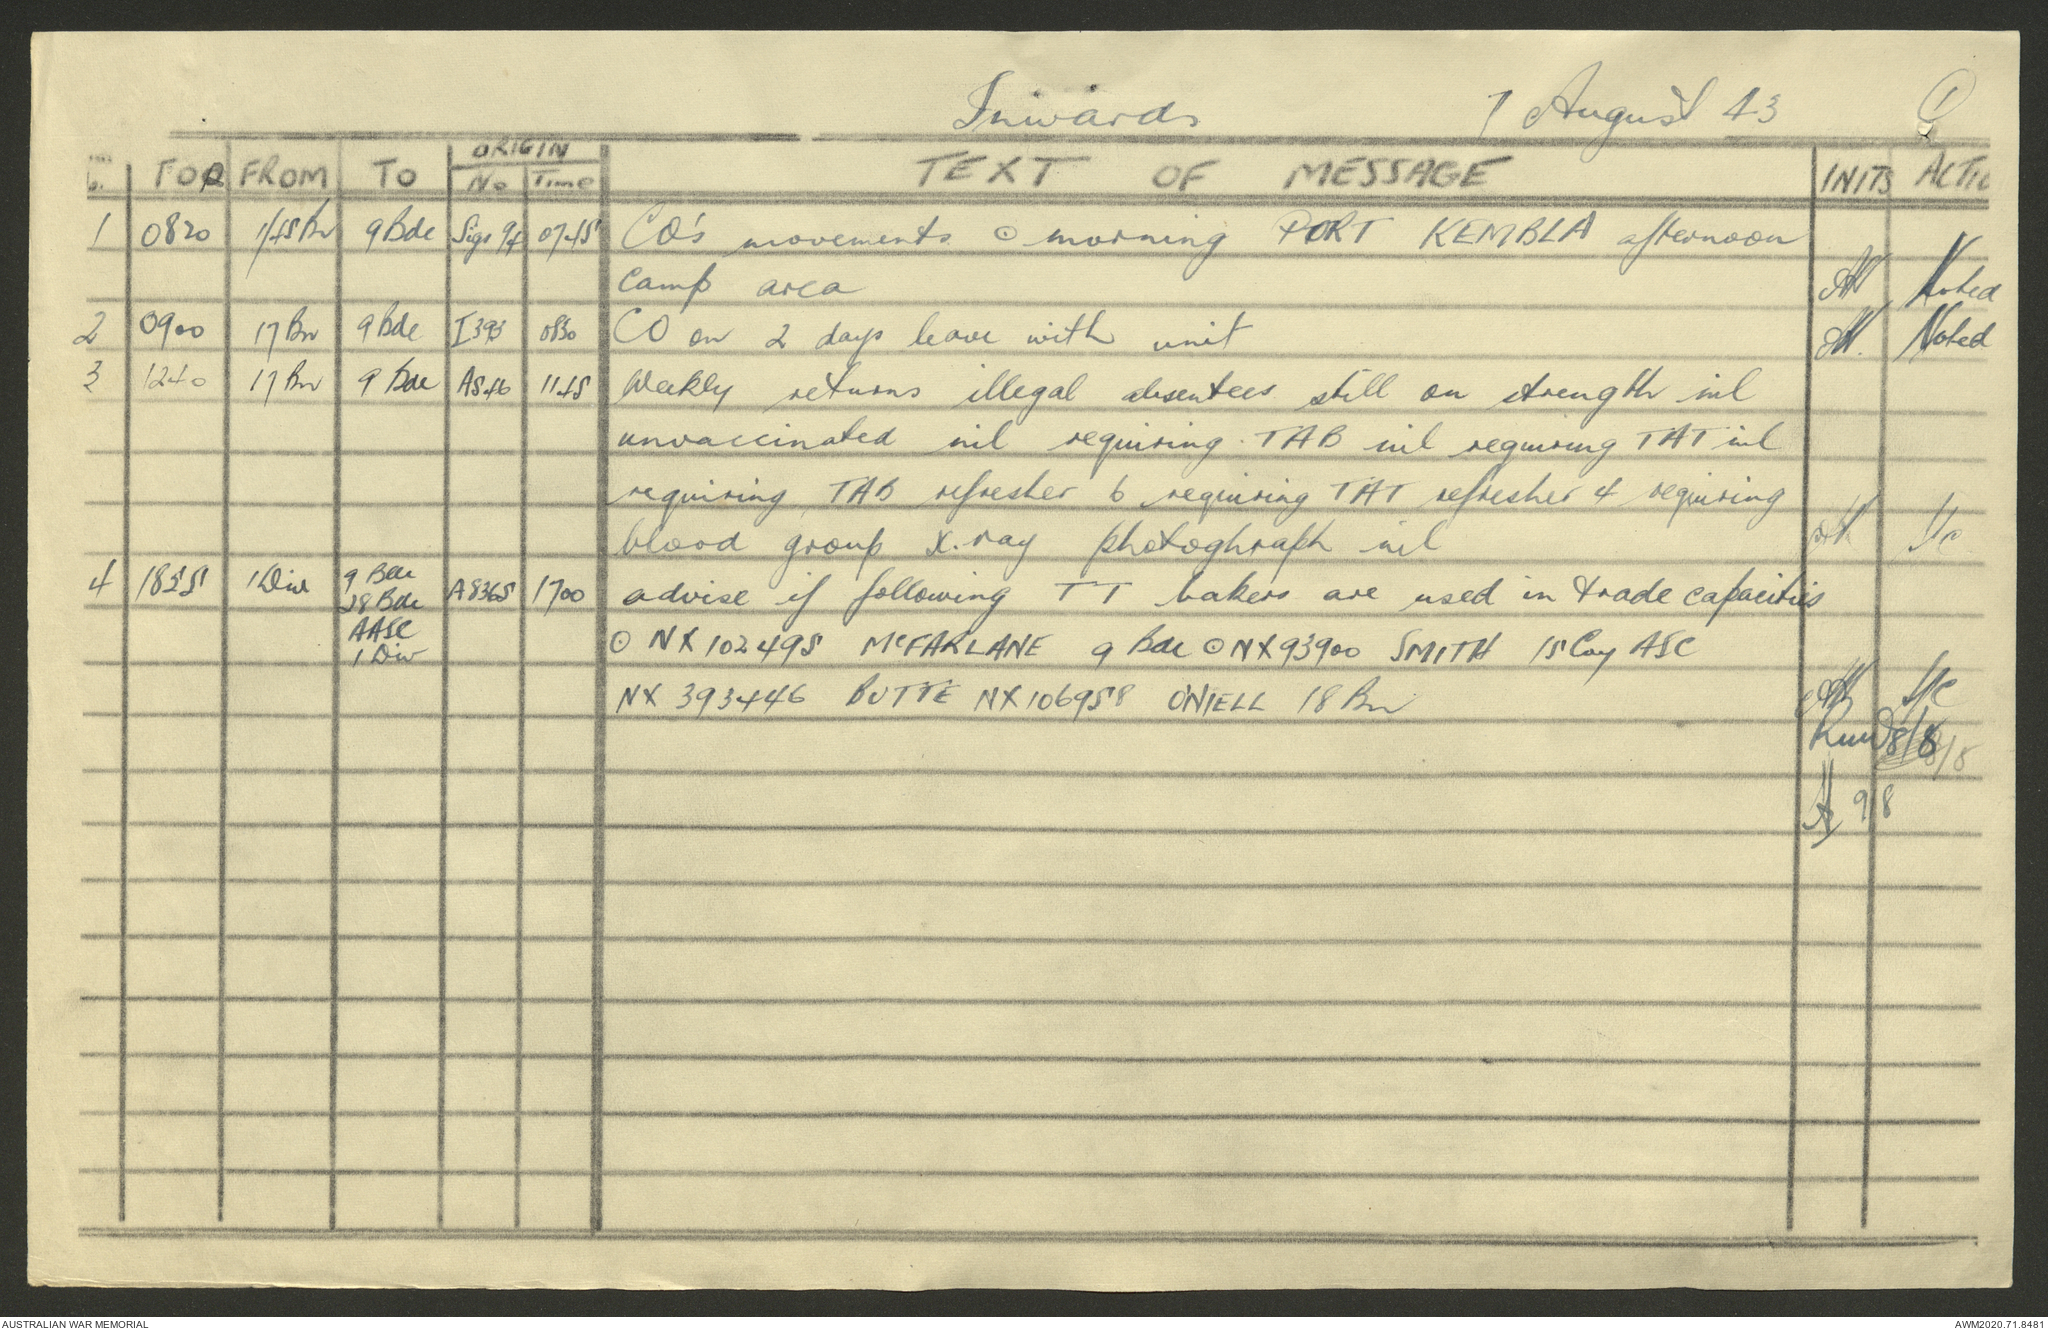 Inwards 7 August 43 1
TOR FROM TO ORIGIN No Time TEXT OF MESSAGE INITS ACTIO
1 0820 1/45 Bn 9 Bde Sigs 94 0745 CO's movements ⊙ morning PORT KEMBLA afternoon
camp area Noted
2 0900 17 Bn 9 Bde I393 0830 CO on 2 days leave with unit Noted
3 1240 17 Bn 9 Bde A546 1145 Weekly returns illegal absentees still on strength nil
unvaccinated nil requiring TAB nil requiring TAT nil
requiring TAB refresher 6 requiring TAT refresher 4 requiring
blood group X.ray photoghraph nil
4 1855 1 Div 9 Bde A8365 1700 advise if following TT bakers are used in trade capacities
28 Bde
AASC
1 Div
⊙ NX102495 McFARLANE 9 Bde ⊙ NX93900 SMITH 15 Coy ASC
NX 393446 BUTTE NX106958 O'NIELL 18 Bn
8/8
9/8
AUSTRALIAN WAR MEMORIAL AWM2020.71.8481